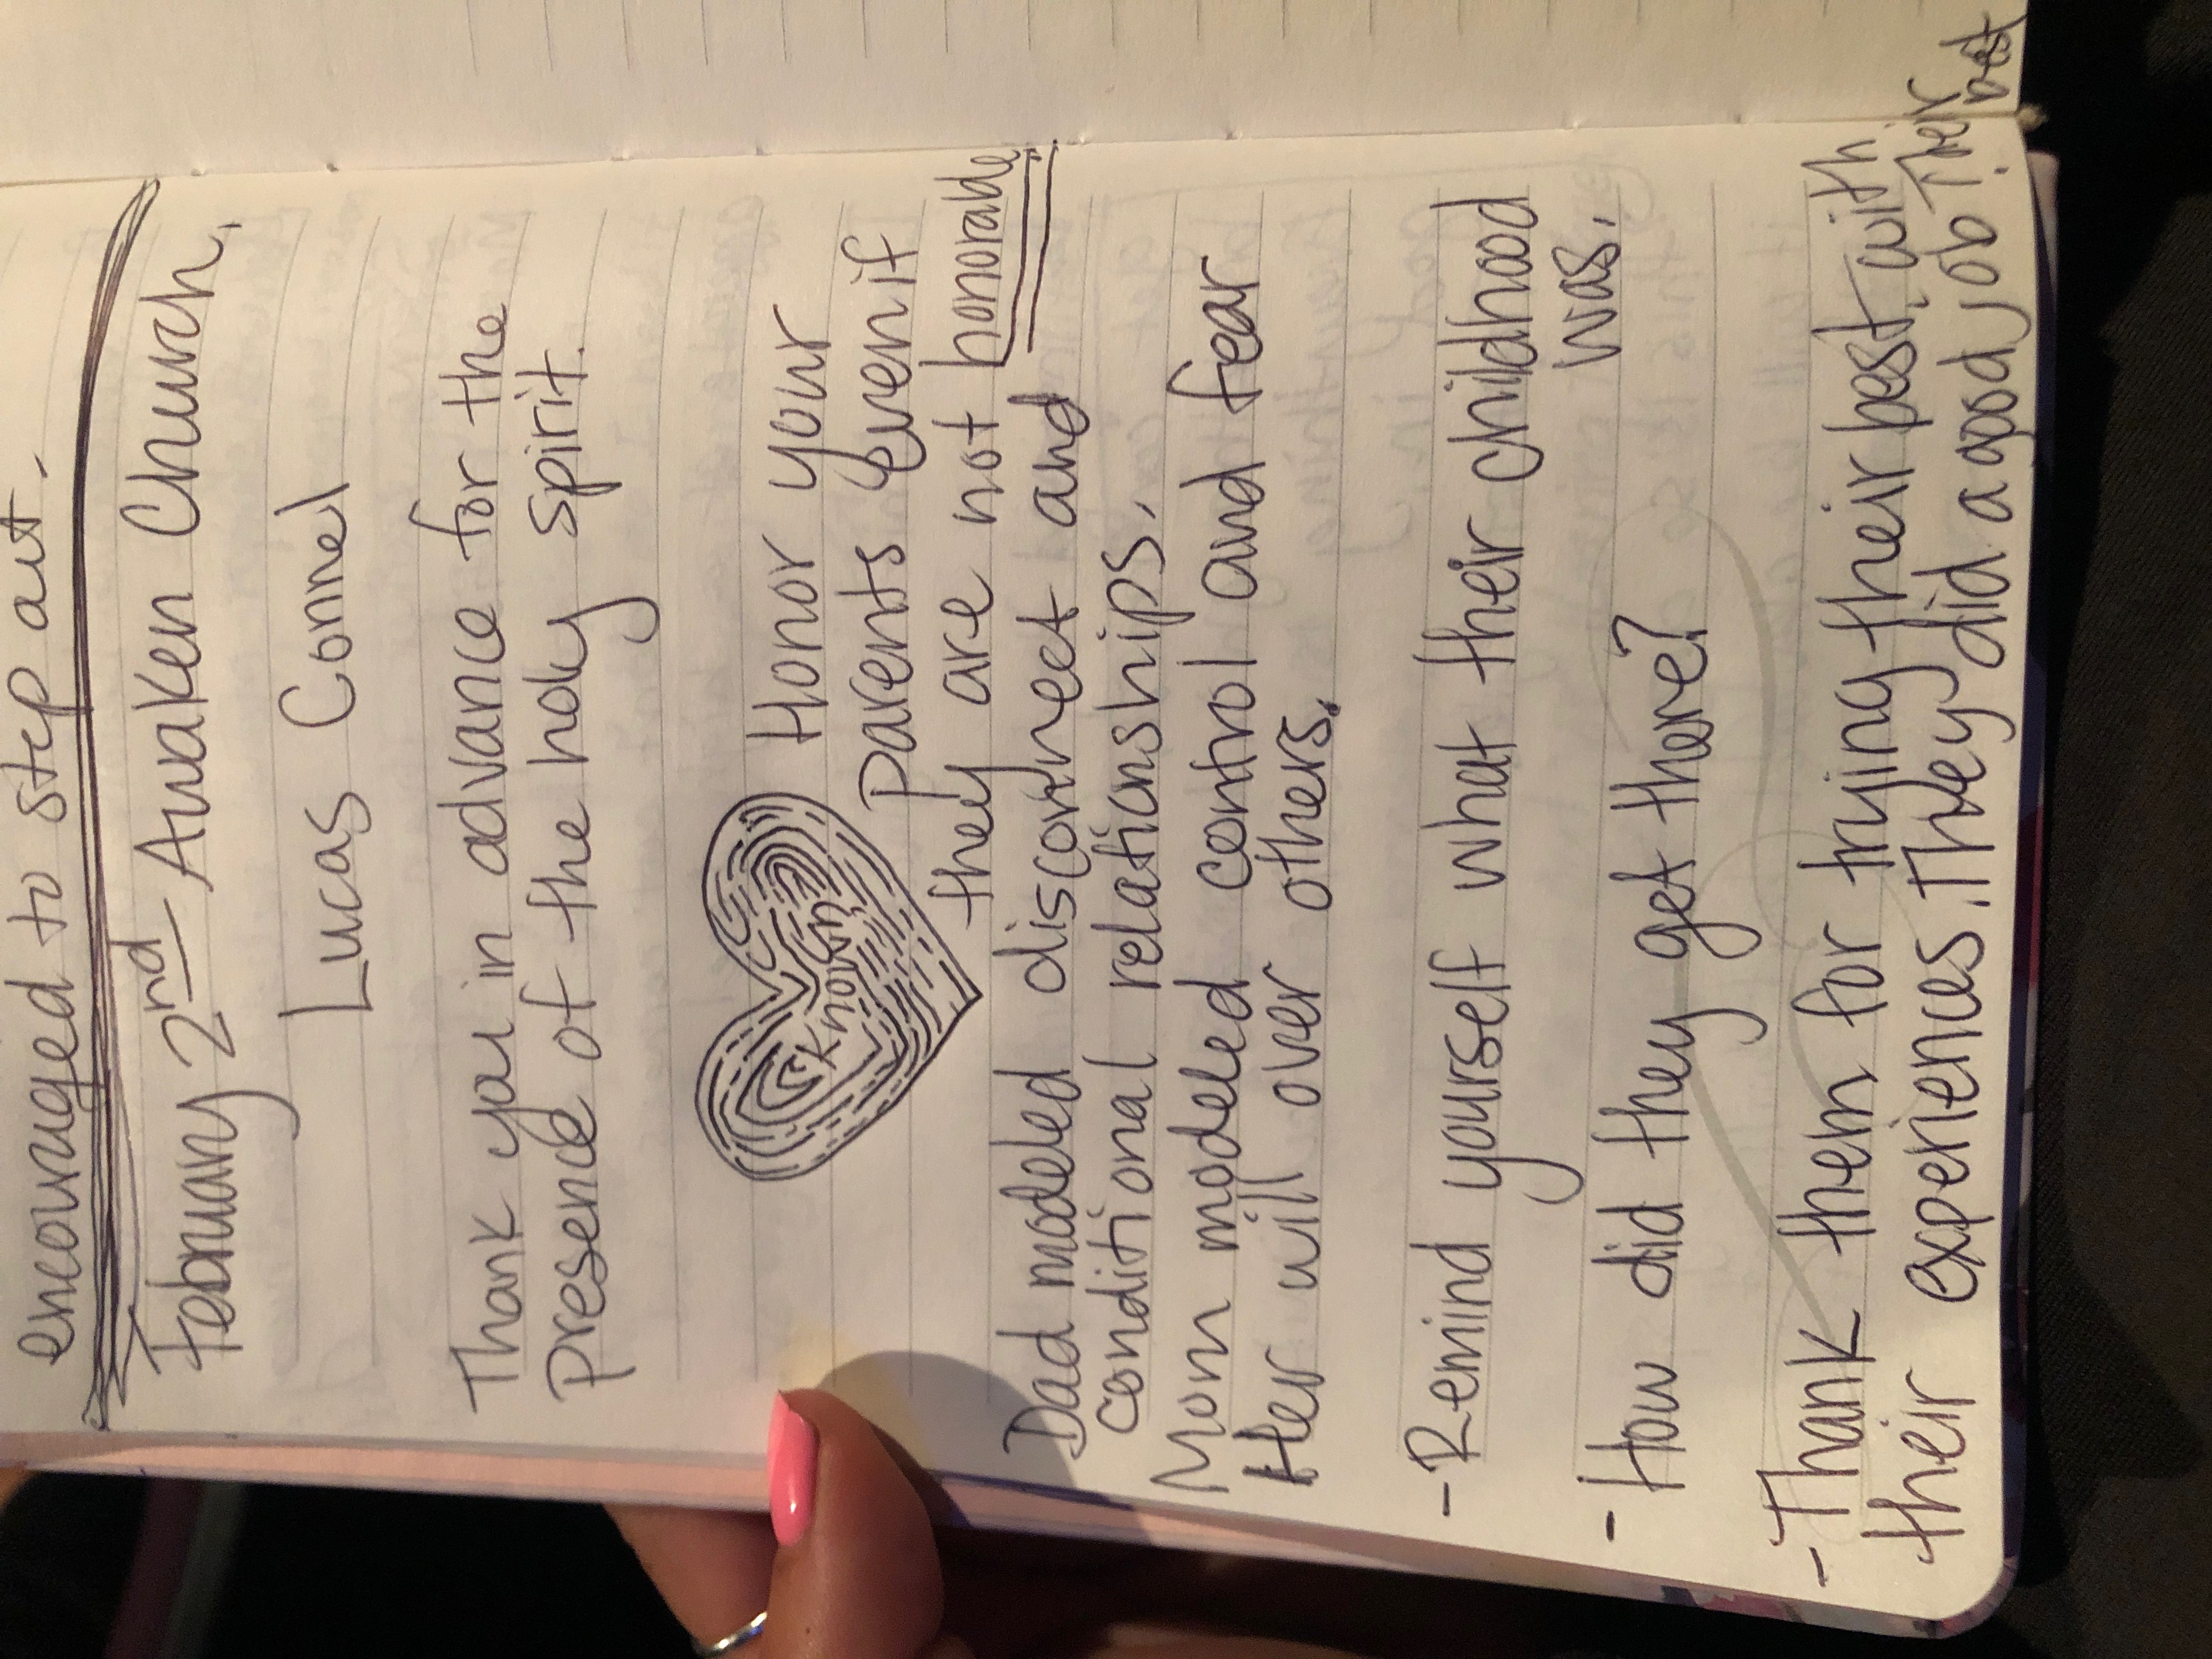 encouraged to step out.
February 2nd Awaken Church,
Lucas Connel
Thank you in advance for the
presence of the holy spirit.
Known
Honor your
parents even if
they are not honorable.
Dad modeled disconnect and
conditional relationships.
Mom modeled control and fear
Her will over others.
-Remind yourself what their childhood
was.
-How did they get there?
-Thank them for trying their best. with
their experiences. They did a good job! Their
best